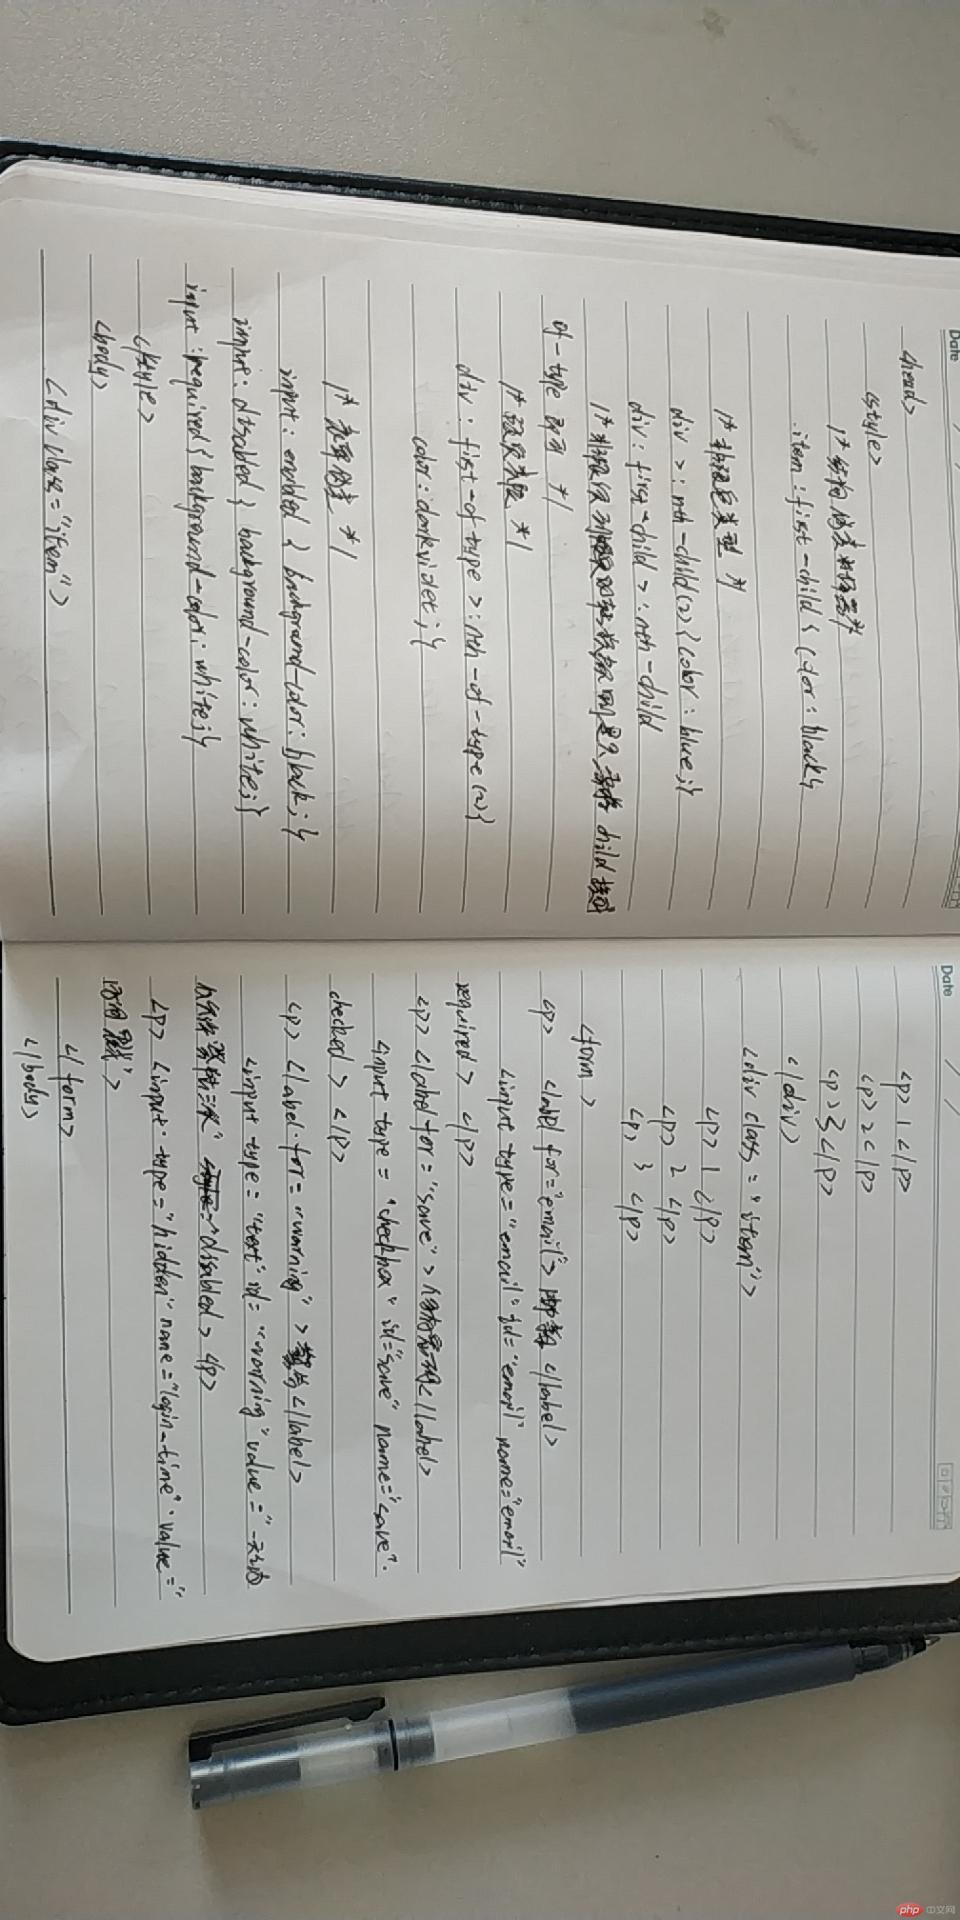 Date
<head>
<style>
/* 结构伪类选择器*/
.item : first-child { color : black}
/* 非限定类型 */
div > : nth-child(2) { color : blue ; }
div : first-child > : nth-child
child
of-type 即可 */
/* */
div : first-of-type > : nth-of-type (2) {
color : darkviolet ; }
/* 表单伪类 */
input : enabled { background-color : black ; }
input : disabled } background-color : white ; }
input : required { background-color : white ; }
</style>
<body>
<div class = "item">
Date
<p> 1 </p>
<p> 2 </p>
<p> 3 </p>
</div>
<div class = "item">
<p> 1 </p>
<p> 2 </p>
<p> 3 </p>
<form>
<p> <label for="email"> 邮箱 </label>
<input type="email" id="email" name="email"
required> </p>
<p> <label for="save"> </label>
<input type = "checkbox" id="save" name="save"
checked> </p>
<p> <label for="warning"> 警告 </label>
<input type="text" id="warning" value="一天内
disabled> </p>
<p> <input type="hidden" name="login-time" value="
">
</form>
</body>
php 中文网